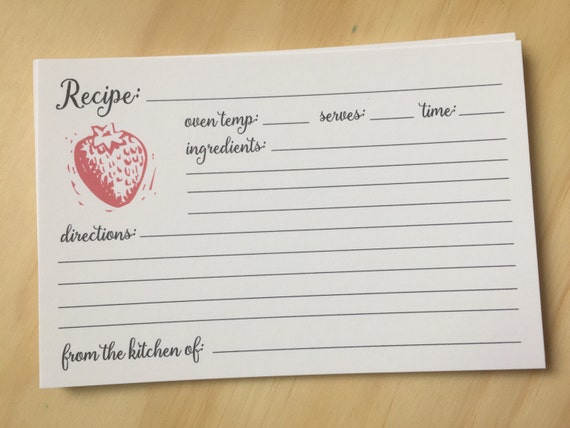 Recipe:
oven temp: serves: time:
ingredients:
directions:
from the kitchen of: